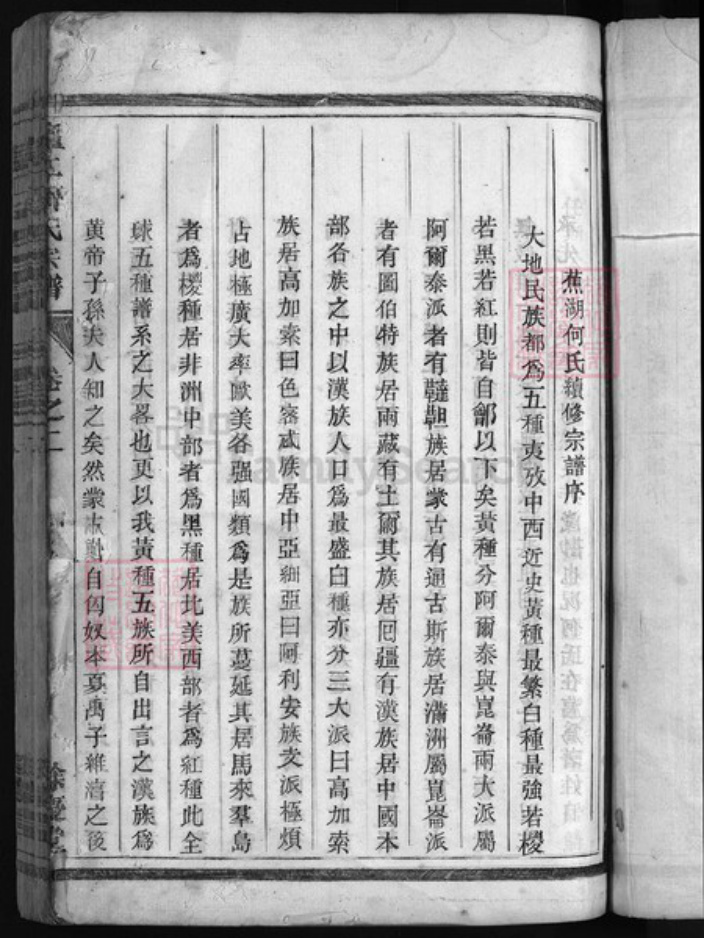 蕉湖何氏續修宗譜序
大地民族都爲五種夷攷中西近史黃種最繁白種最強若椶
若黑若紅則皆自鄶以下矣黃種分阿爾泰與崑崙兩大派屬
阿爾泰派者有韃靼族居蒙古有通古斯族居滿洲屬崑崙派
者有圖伯特族居兩藏有土爾其族居回疆有漢族居中國本
部各族之中以漢族人口爲最盛白種亦分三大派曰高加索
族居高加索曰色密忒族居中亞細亞曰阿利安族支派極煩
占地極廣大率歐美各强國類爲是族所蔓延其居馬來羣島
者爲椶種居非洲中部者爲黑種居北美西部者爲紅種此全
球五種譜系之大畧也更以我黃種五族所自出言之漢族爲
黃帝子孫夫人知之矣然蒙古自匈奴本夏禹子維濟之後
氏宗譜
卷之二
FamilySearch